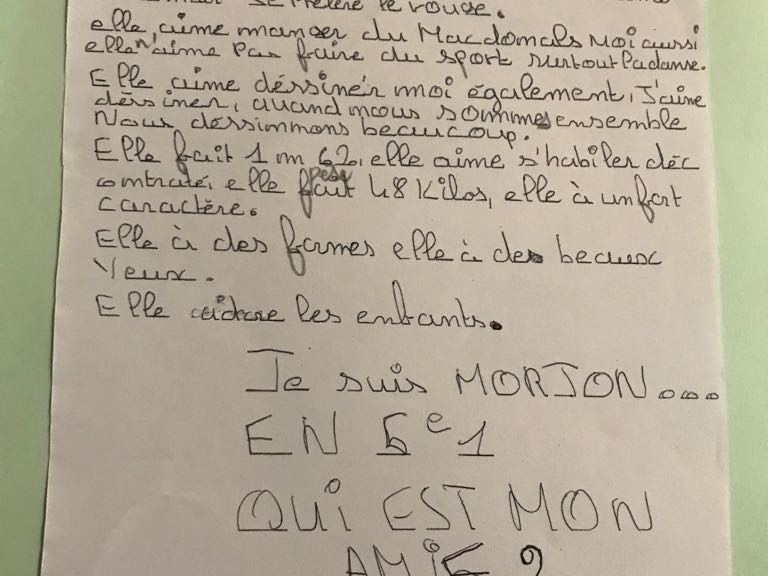 se préfère le rouge.
elle, aime manger du Macdonals Moi aussi
elle n'aime pas faire du sport surtout la danse.
Elle aime déssiner moi également, J'aime
déssiner, quand nous sommes ensemble
Nous déssinnons beaucoup.
Elle fait 1 m 62, elle aime s'habiler déc
contraté, elle pese 48 Kilos, elle à un fort
caractère.
Elle à des formes elle à de beaux
Yeux.
Elle adore les enfants.
Je suis MORJON...
EN 6e1
QUI EST MON
AMIE ?